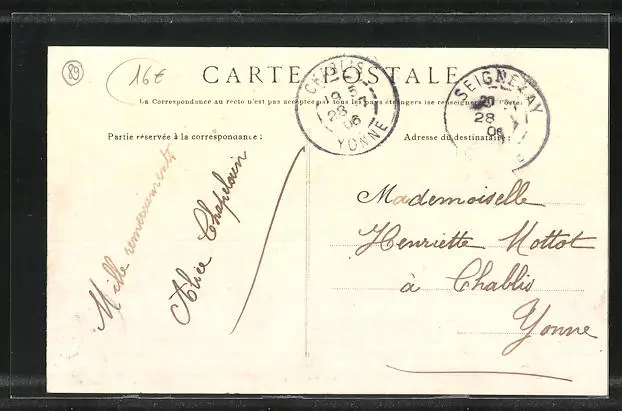 89
16€
CARTE POSTALE
La Correspondance au recto n'est pas acceptée par tous les pays étrangers (se renseigner à la Poste)
Partie réservée à la correspondance :
Adresse du destinataire :
CHABLIS
28
06
YONNE
SEIGNELAY
28
06
Mille remerciements
Alice Chapelain
Mademoiselle
Henriette Mottot
à Chablis
Yonne